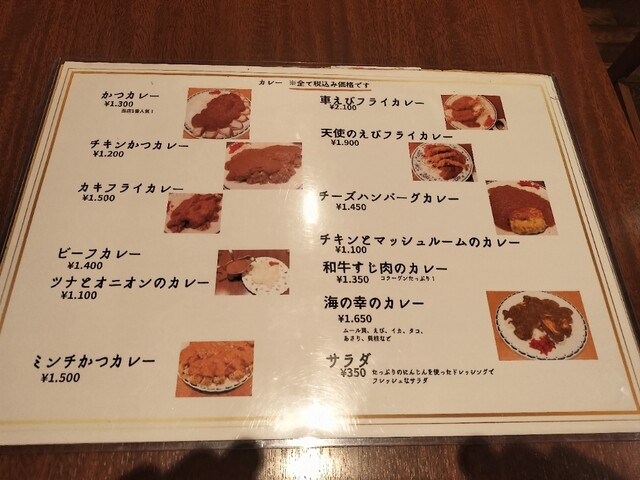 カレー ※全て税込み価格です
かつカレー
¥1.300
当店1番人気!
チキンかつカレー
¥1.200
カキフライカレー
¥1.500
ビーフカレー
¥1.400
ツナとオニオンのカレー
¥1.100
ミンチかつカレー
¥1.500
車えびフライカレー
¥2.100
天使のえびフライカレー
¥1.900
チーズハンバーグカレー
¥1.450
チキンとマッシュルームのカレー
¥1.100
和牛すじ肉のカレー
¥1.350 コラーゲンたっぷり!
海の幸のカレー
¥1.650
ムール貝、えび、イカ、タコ、
あさり、貝柱など
サラダ
¥350 たっぷりのにんじんを使ったドレッシングで
フレッシュなサラダ